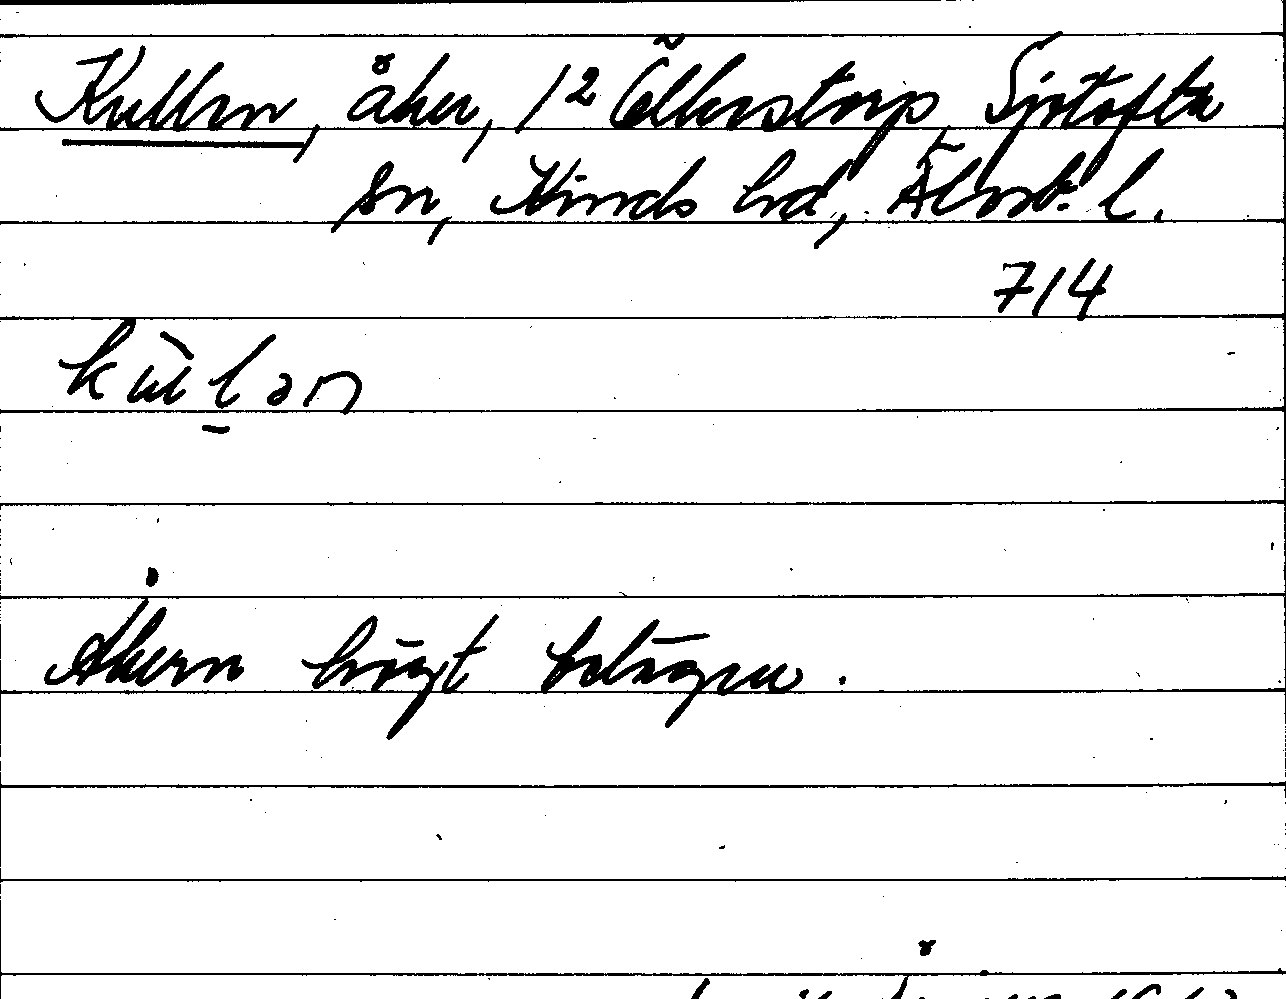 Kullen, åker, 1² Ölkerstorp, Sjötofta
sn, Kinds hd, Älvsb. l.
714
kùl̠ən
Åkern högt belägen.